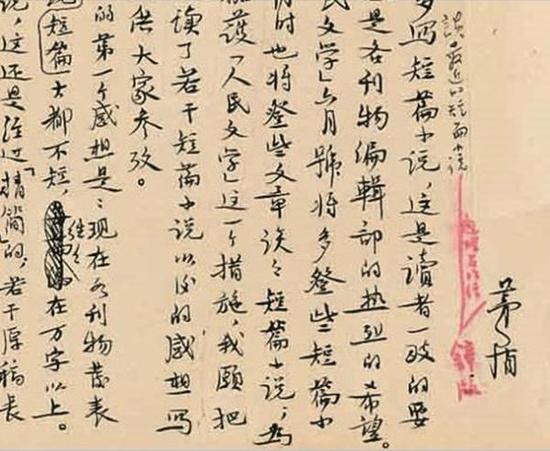 茅盾
談最近的短篇小说
锌版
多写短篇小说，这是读者一致的要
是各刊物编辑部的热烈的希望。
民文学」六月號将多登些短篇小
时也将登些文章谈谈短篇小说，为
护「人民文学」这一个措施，我愿把
读了若干短篇小说以后的感想写
供大家参攷。
的第一个感想是：现在各刊物發表
短篇大都不短，往往在万字以上。
说，这还是经过「精简」的，若干原稿长